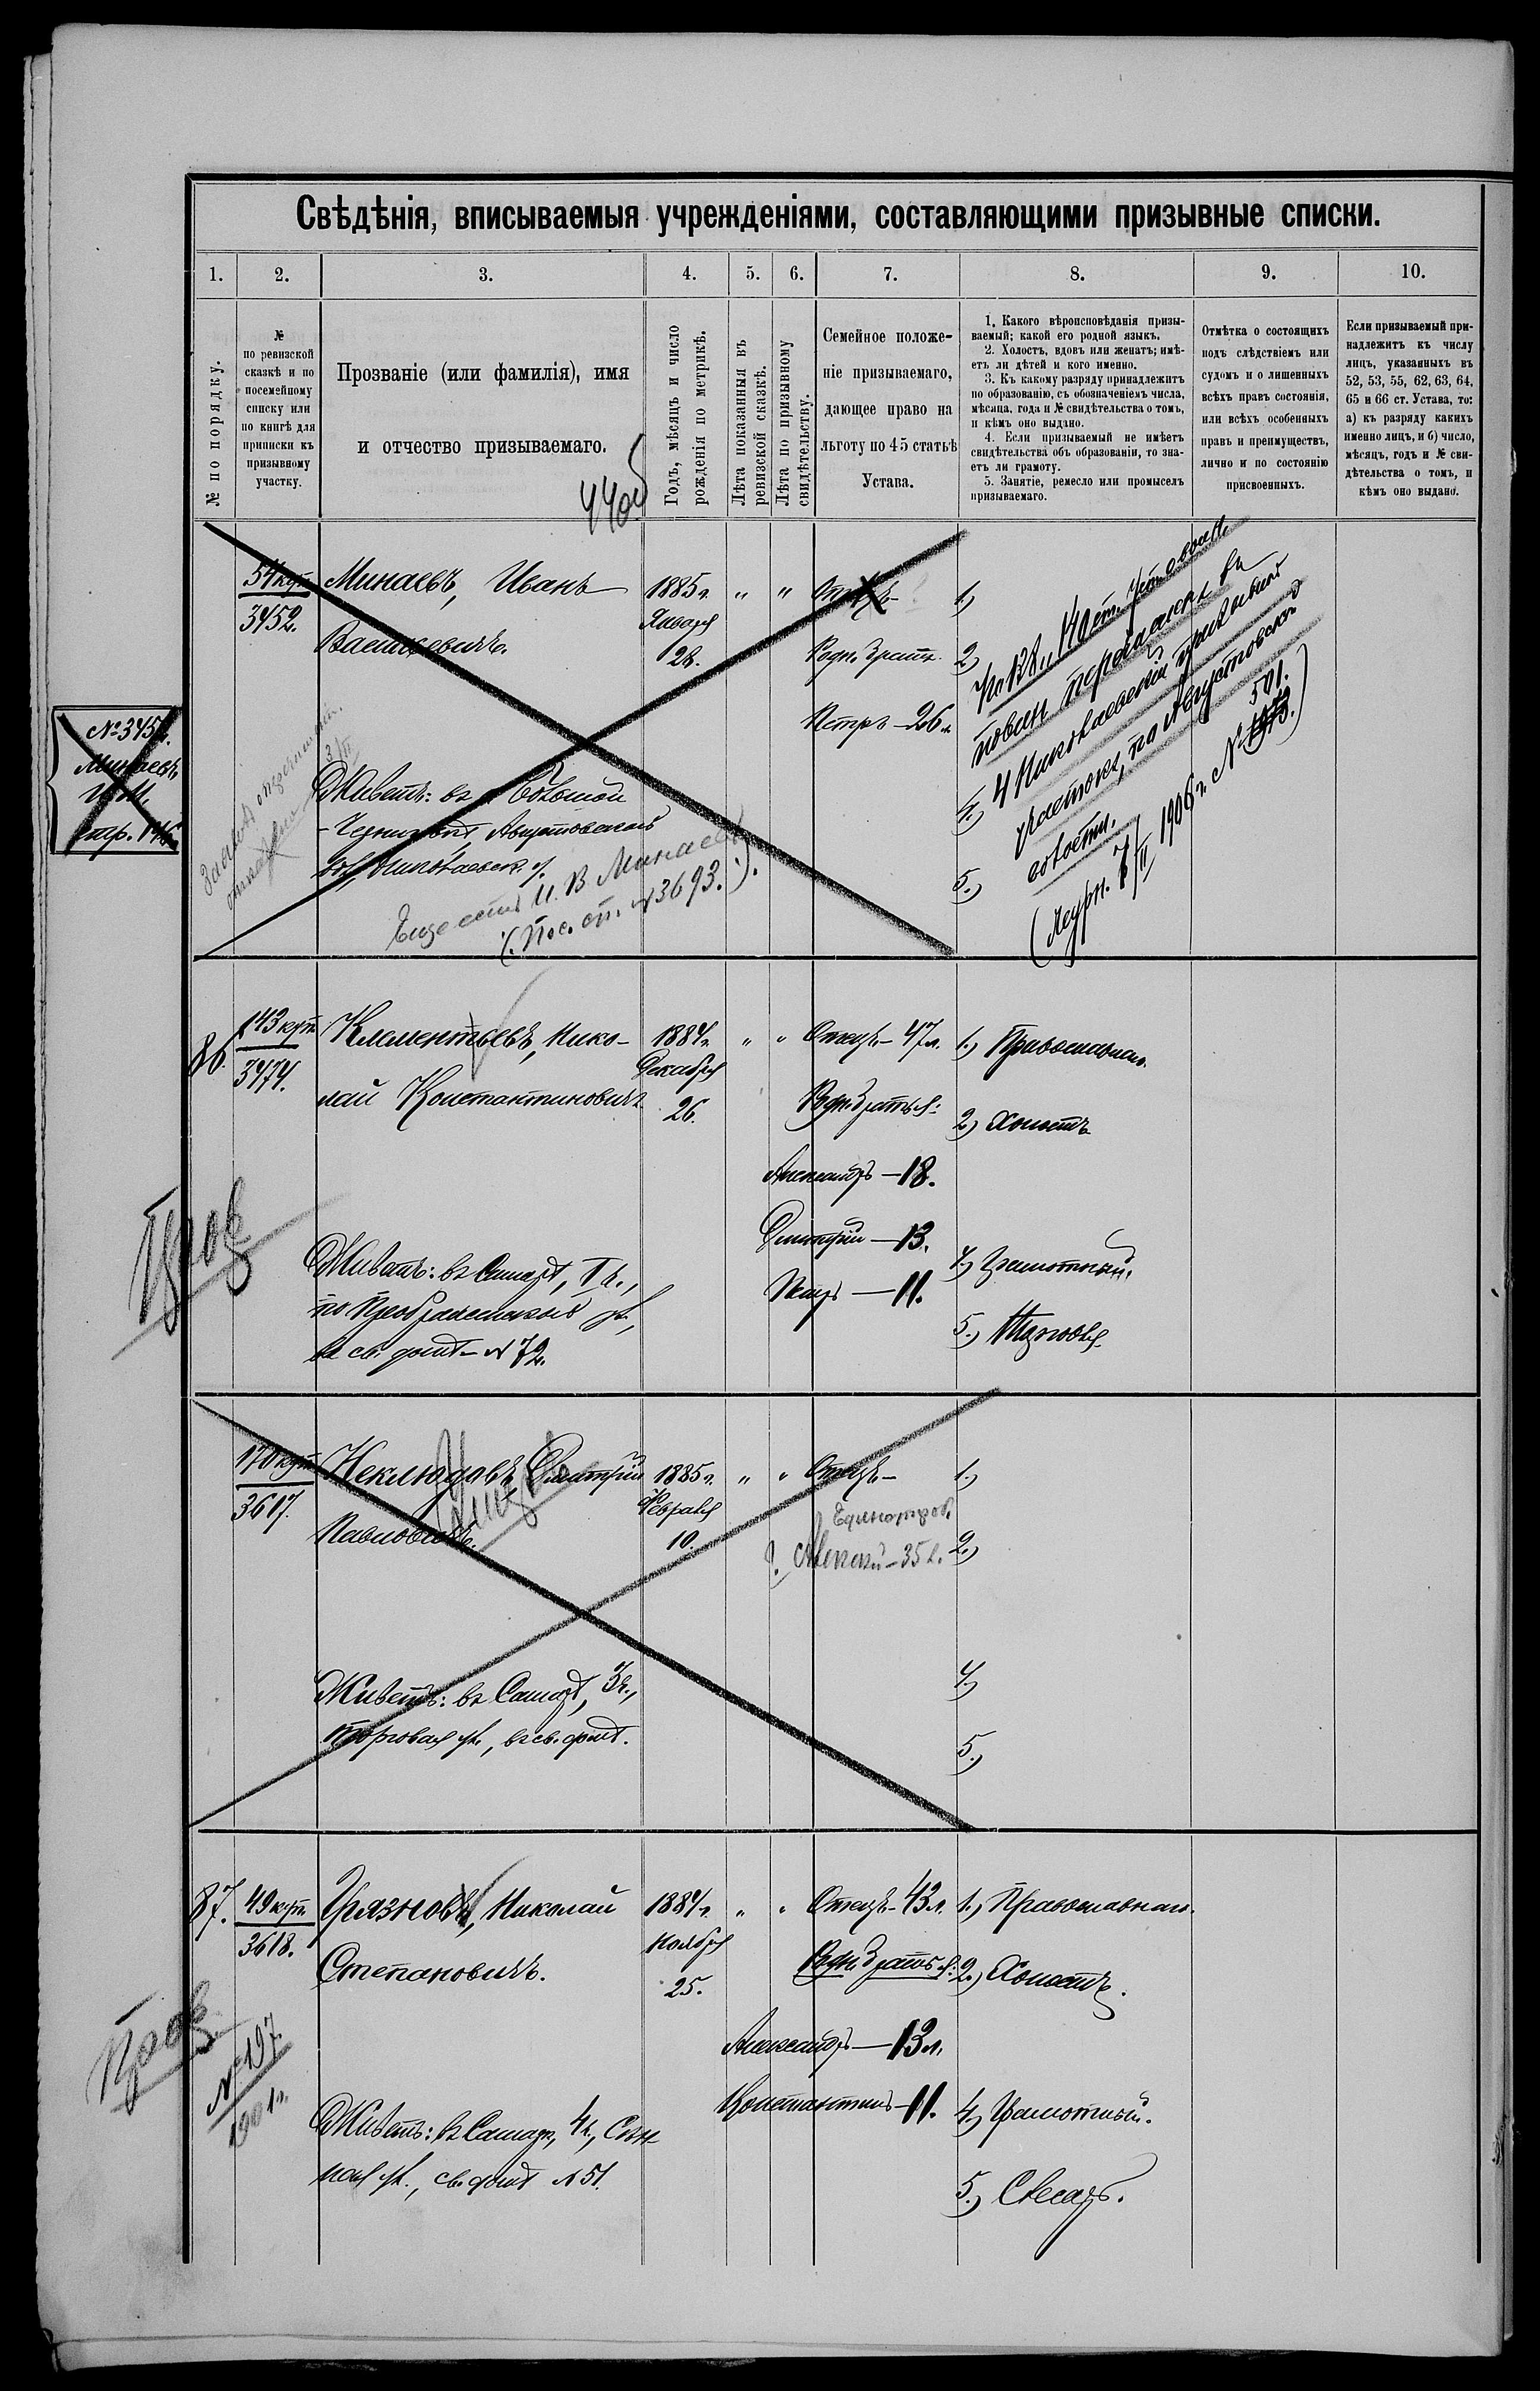 Свѣдѣнія, вписываемыя учрежденіями, составляющими призывные списки.
1. 2. 3. 4. 5. 6. 7. 8. 9. 10.
№ по порядку.
№
по ревизской
сказкѣ и по
посемейному
списку или
по книгѣ для
приписки къ
призывному
участку.
Прозваніе (или фамилія), имя
и отчество призываемаго.
Годъ, мѣсяцъ и число
рожденія по метрикѣ.
Лѣта показанныя въ
ревизской сказкѣ.
Лѣта по призывному
свидѣтельству.
Семейное положе-
ніе призываемаго,
дающее право на
льготу по 45 статьѣ
Устава.
1. Какого вѣроисповѣданія призы-
ваемый; какой его родной языкъ.
2. Холостъ, вдовъ или женатъ; имѣ-
етъ ли дѣтей и кого именно.
3. Къ какому разряду принадлежитъ
по образованію, съ обозначеніемъ числа,
мѣсяца, года и № свидѣтельства о томъ,
и кѣмъ оно выдано.
4. Если призываемый не имѣетъ
свидѣтельства объ образованіи, то зна-
етъ ли грамоту.
5. Занятіе, ремесло или промыселъ
призываемаго.
Отмѣтка о состоящихъ
подъ слѣдствіемъ или
судомъ и о лишенныхъ
всѣхъ правъ состоянія,
или всѣхъ особенныхъ
правъ и преимуществъ,
лично и по состоянію
присвоенныхъ.
Если призываемый при-
надлежитъ къ числу
лицъ, указанныхъ въ
52, 53, 55, 62, 63, 64,
65 и 66 ст. Устава, то:
а) къ разряду какихъ
именно лицъ, и б) число,
мѣсяцъ, годъ и № сви-
дѣтельства о томъ, и
кѣмъ оно выдано.
54 куп.
3452.
Минаевъ, Иванъ
Васильевичъ.
1885 г.
Января
28.
" "
Отецъ-
Родн. братъ
Петръ - 26 л.
1.)
2.)
4.)
5.)
по 138 и 140 ст. Уст. о воин.
повин. переданъ въ
4 Николаевскій призывной
участокъ, по Августовской
волости.
(Журн. 7/II 1906 г. № 501.)
№ 3452.
Минаевъ
И. И.
стр. 146
Живетъ: въ с. Большой
Черниговкѣ, Августовской
вол., Николаевск. у.
Еще есть И. В. Минаевъ
(Пос. сп. № 3693.).
86.
143 куп.
3474.
Клементьевъ, Нико-
лай Константиновичъ
1884 г.
Декабря
26.
" "
Отецъ - 47 л.
Родн. братья:
Александръ - 18.
Дмитрій - 13.
Петръ - 11.
1.) Православнаго
2.) Холостъ
4.) Грамотный.
5.) Торговля
Живетъ: въ Самарѣ, I ч.,
по Преображенской ул.,
въ св. домѣ - № 72.
170 куп.
3617.
Неклюдовъ, Дмитрій
Павловичъ.
1885 г.
Февраля
10.
" "
Отецъ-
Единоутроб.
Алексѣй - 35 л.
1.)
2.)
4.)
5.)
Живетъ: въ Самарѣ, 3 ч.,
Торговая ул., въ св. домѣ.
87.
49 куп.
3618.
Грязновъ, Николай
Степановичъ.
1884 г.
Ноября
25.
" "
Отецъ - 43 л.
Родн. братья:
Александръ - 13 л.
Константинъ - 11.
1.) Православнаго.
2.) Холостъ.
4.) Грамотный.
5.) Слесарь.
№ 197
1901 г.
Живетъ: въ Самарѣ, 4 ч., Сѣн
ная ул., св. домѣ № 51.